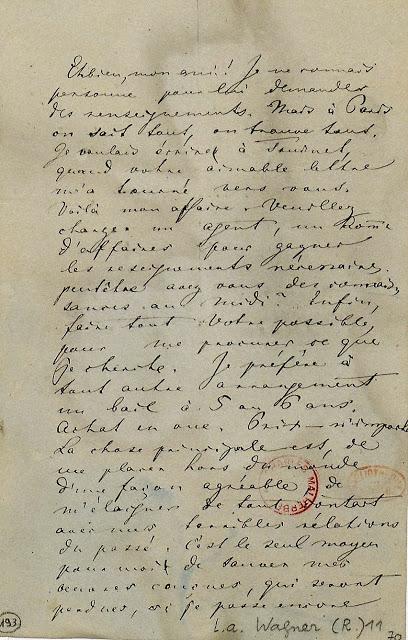 Ehbien, mon ami! Je ne connais
personne pour lui demander
des renseignements. Mais à Paris
on sait tout, on trouve tout.
Je voulais écrire à
quand votre aimable lettre
m'a tourné vers vous.
Voilà mon affaire. Veuillez
charger un agent, un homme
d'affaires pour gagner
les renseignements nécessaires.
peutêtre avez vous des connais-
sances au midi? Enfin,
faire tout votre possible,
pour me procurer ce que
je cherche. Je préfère à
tout autre arrangement
un bail à 5 ou 6 ans.
Achat en vue. Prix — n'importe
La chose principale est, de
me placer hors du monde
d'une façon agréable de
m'éloigner de tout contact
avec mes terribles rélations
du passé. C'est le seul moyen
pour moi de sauver mes
oeuvres conçues, qui seront
perdues, si je passe encore
L.a. Wagner (R.) 11
193
70
CHARLES MALHERBE